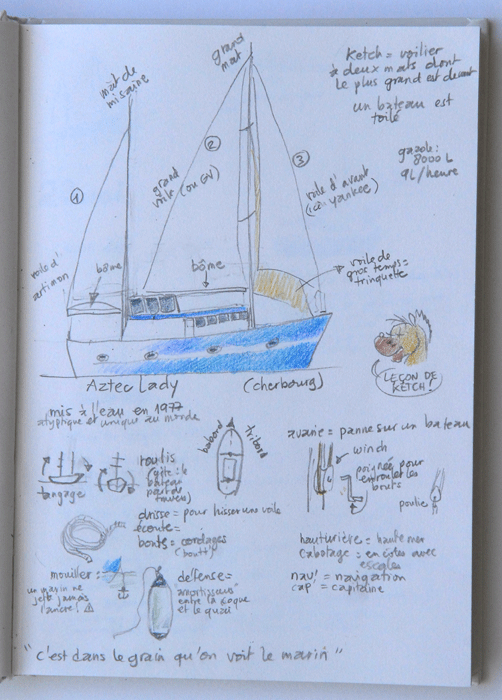 grand
mat
mât de
misaine
Ketch = voilier
à deux mats dont
le plus grand est devant
un bateau est
toilé
gazole:
8000 L
9L/heure
①
②
③
grand
voile (ou GV)
voile d'avant
(ici yankee)
voile d'
artimon
bôme
bôme
voile de
gros temps=
trinquette
LEÇON DE
KETCH!
Aztec Lady
(cherbourg)
mis à l'eau en 1977
atypique et unique au monde
tangage
roulis
(gîte: le
bateau
part de
travers)
babord
tribord
avarie = panne sur un bateau
winch
poignée pour
enrouler les
bouts
poulie
drisse = pour hisser une voile
écoute =
bouts = cordages
(boutt)
hauturière = haute mer
cabotage = en côtes avec
escales
nav! = navigation
cap = capitaine
mouiller:
un marin ne
jette jamais
l'ancre!
défense=
amortisseurs
entre la coque
et le quai
"c'est dans le grain qu'on voit le marin"